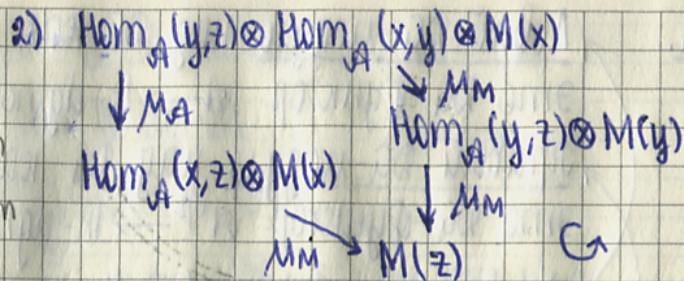 2) Hom_A(y,z)⊗Hom_A(x,y)⊗M(x)
↓ μ_A ↘ μ_M
Hom_A(y,z)⊗M(y)
Hom_A(x,z)⊗M(x)
↓ μ_M
μ_M ↘ M(z) ↺